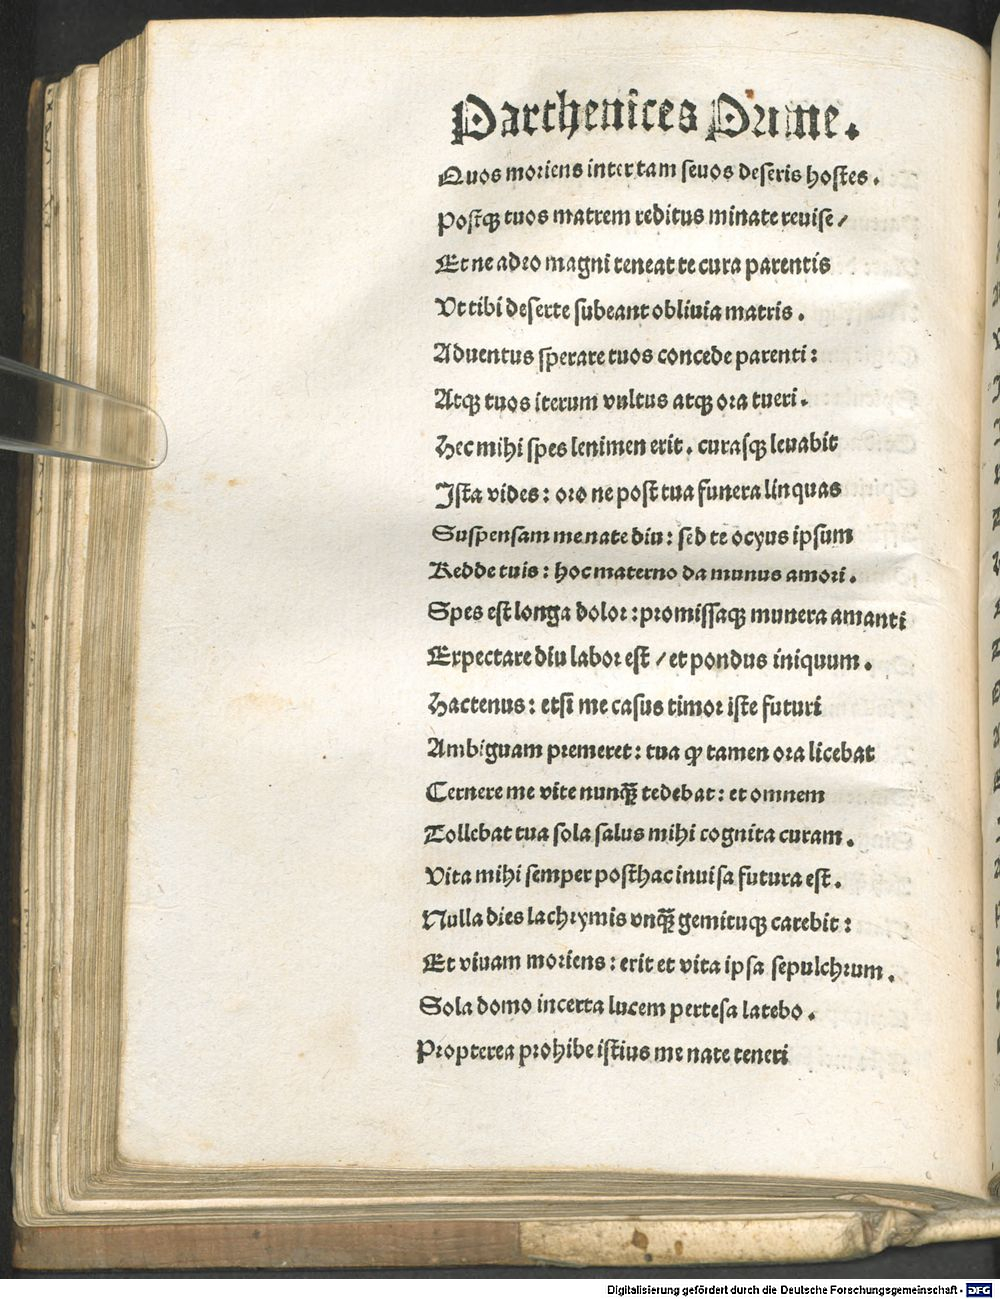 Parthenices Prime.
Quos moriens inter tam sevos deseris hostes.
Postꝙ tuos matrem reditus minate revise /
Et ne adeo magni teneat te cura parentis
Ut tibi deserte subeant oblivia matris.
Aduentus sperare tuos concede parenti:
Atqꝫ tuos iterum vultus atqꝫ ora tueri.
Hec mihi spes lenimen erit. curasqꝫ leuabit
Ista vides: oro ne post tua funera linquas
Suspensam me nate diu: sed te ocyus ipsum
Redde tuis: hoc materno da munus amori.
Spes est longa dolor: promissaqꝫ munera amanti
Expectare diu labor est / et pondus iniquum.
Hactenus: etsi me casus timor iste futuri
Ambiguam premeret: tua ꝙ tamen ora licebat
Cernere me vite nunqꝫ̄ tedebat: et omnem
Tollebat tua sola salus mihi cognita curam.
Vita mihi semper posthac inuisa futura est.
Nulla dies lachrymis vnqꝫ̄ gemituqꝫ carebit:
Et viuam moriens: erit et vita ipsa sepulchrum.
Sola domo incerta lucem pertesa latebo.
Propterea prohibe istius me nate teneri
Digitalisierung gefördert durch die Deutsche Forschungsgemeinschaft - DFG